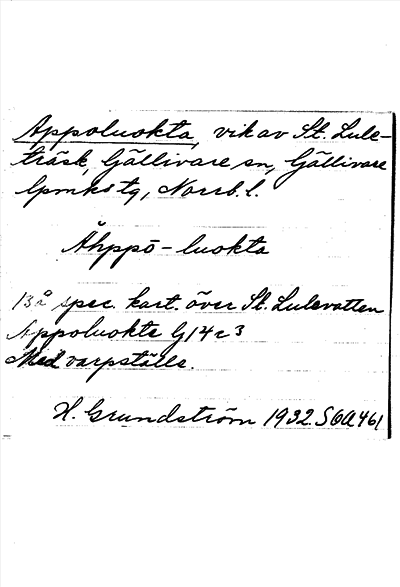 Appoluokta, vik av St. Lule-
träsk, Gällivare sn, Gällivare
lpmks tg, Norrb. l.
Åhppō-luokta
Bå spec. kart. över St. Lulevatten
Appoluokta G 14 c 3
Med varpställe.
H. Grundström 1932. SOA 461